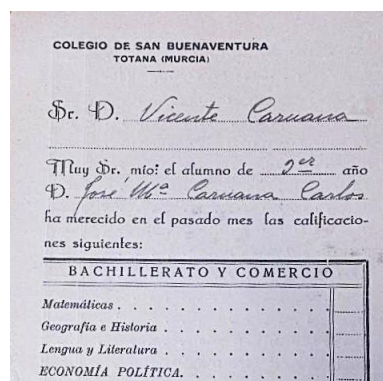 COLEGIO DE SAN BUENAVENTURA
TOTANA (MURCIA)
Sr. D. Vicente Caruana
Muy Sr. mío: el alumno de 2er año
D. José Mª Caruana Carlos
ha merecido en el pasado mes las calificacio-
nes siguientes:
BACHILLERATO Y COMERCIO
Matemáticas
Geografía e Historia
Lengua y Literatura
ECONOMÍA POLÍTICA.